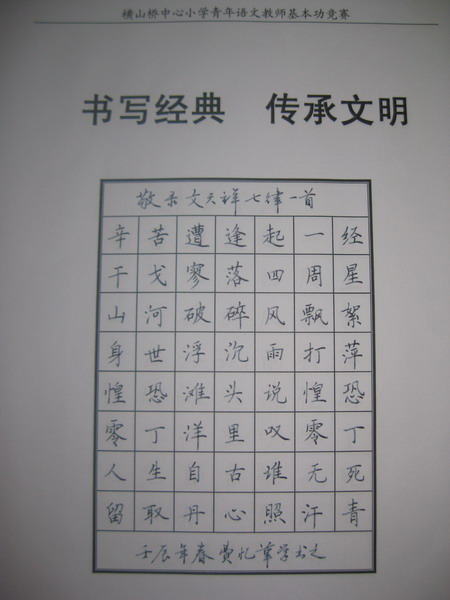 横山桥中心小学青年语文教师基本功竞赛
书写经典 传承文明
敬录文天祥七律一首
辛苦遭逢起一经
干戈寥落四周星
山河破碎风飘絮
身世浮沉雨打萍
惶恐滩头说惶恐
零丁洋里叹零丁
人生自古谁无死
留取丹心照汗青
壬辰年春费忆学书之